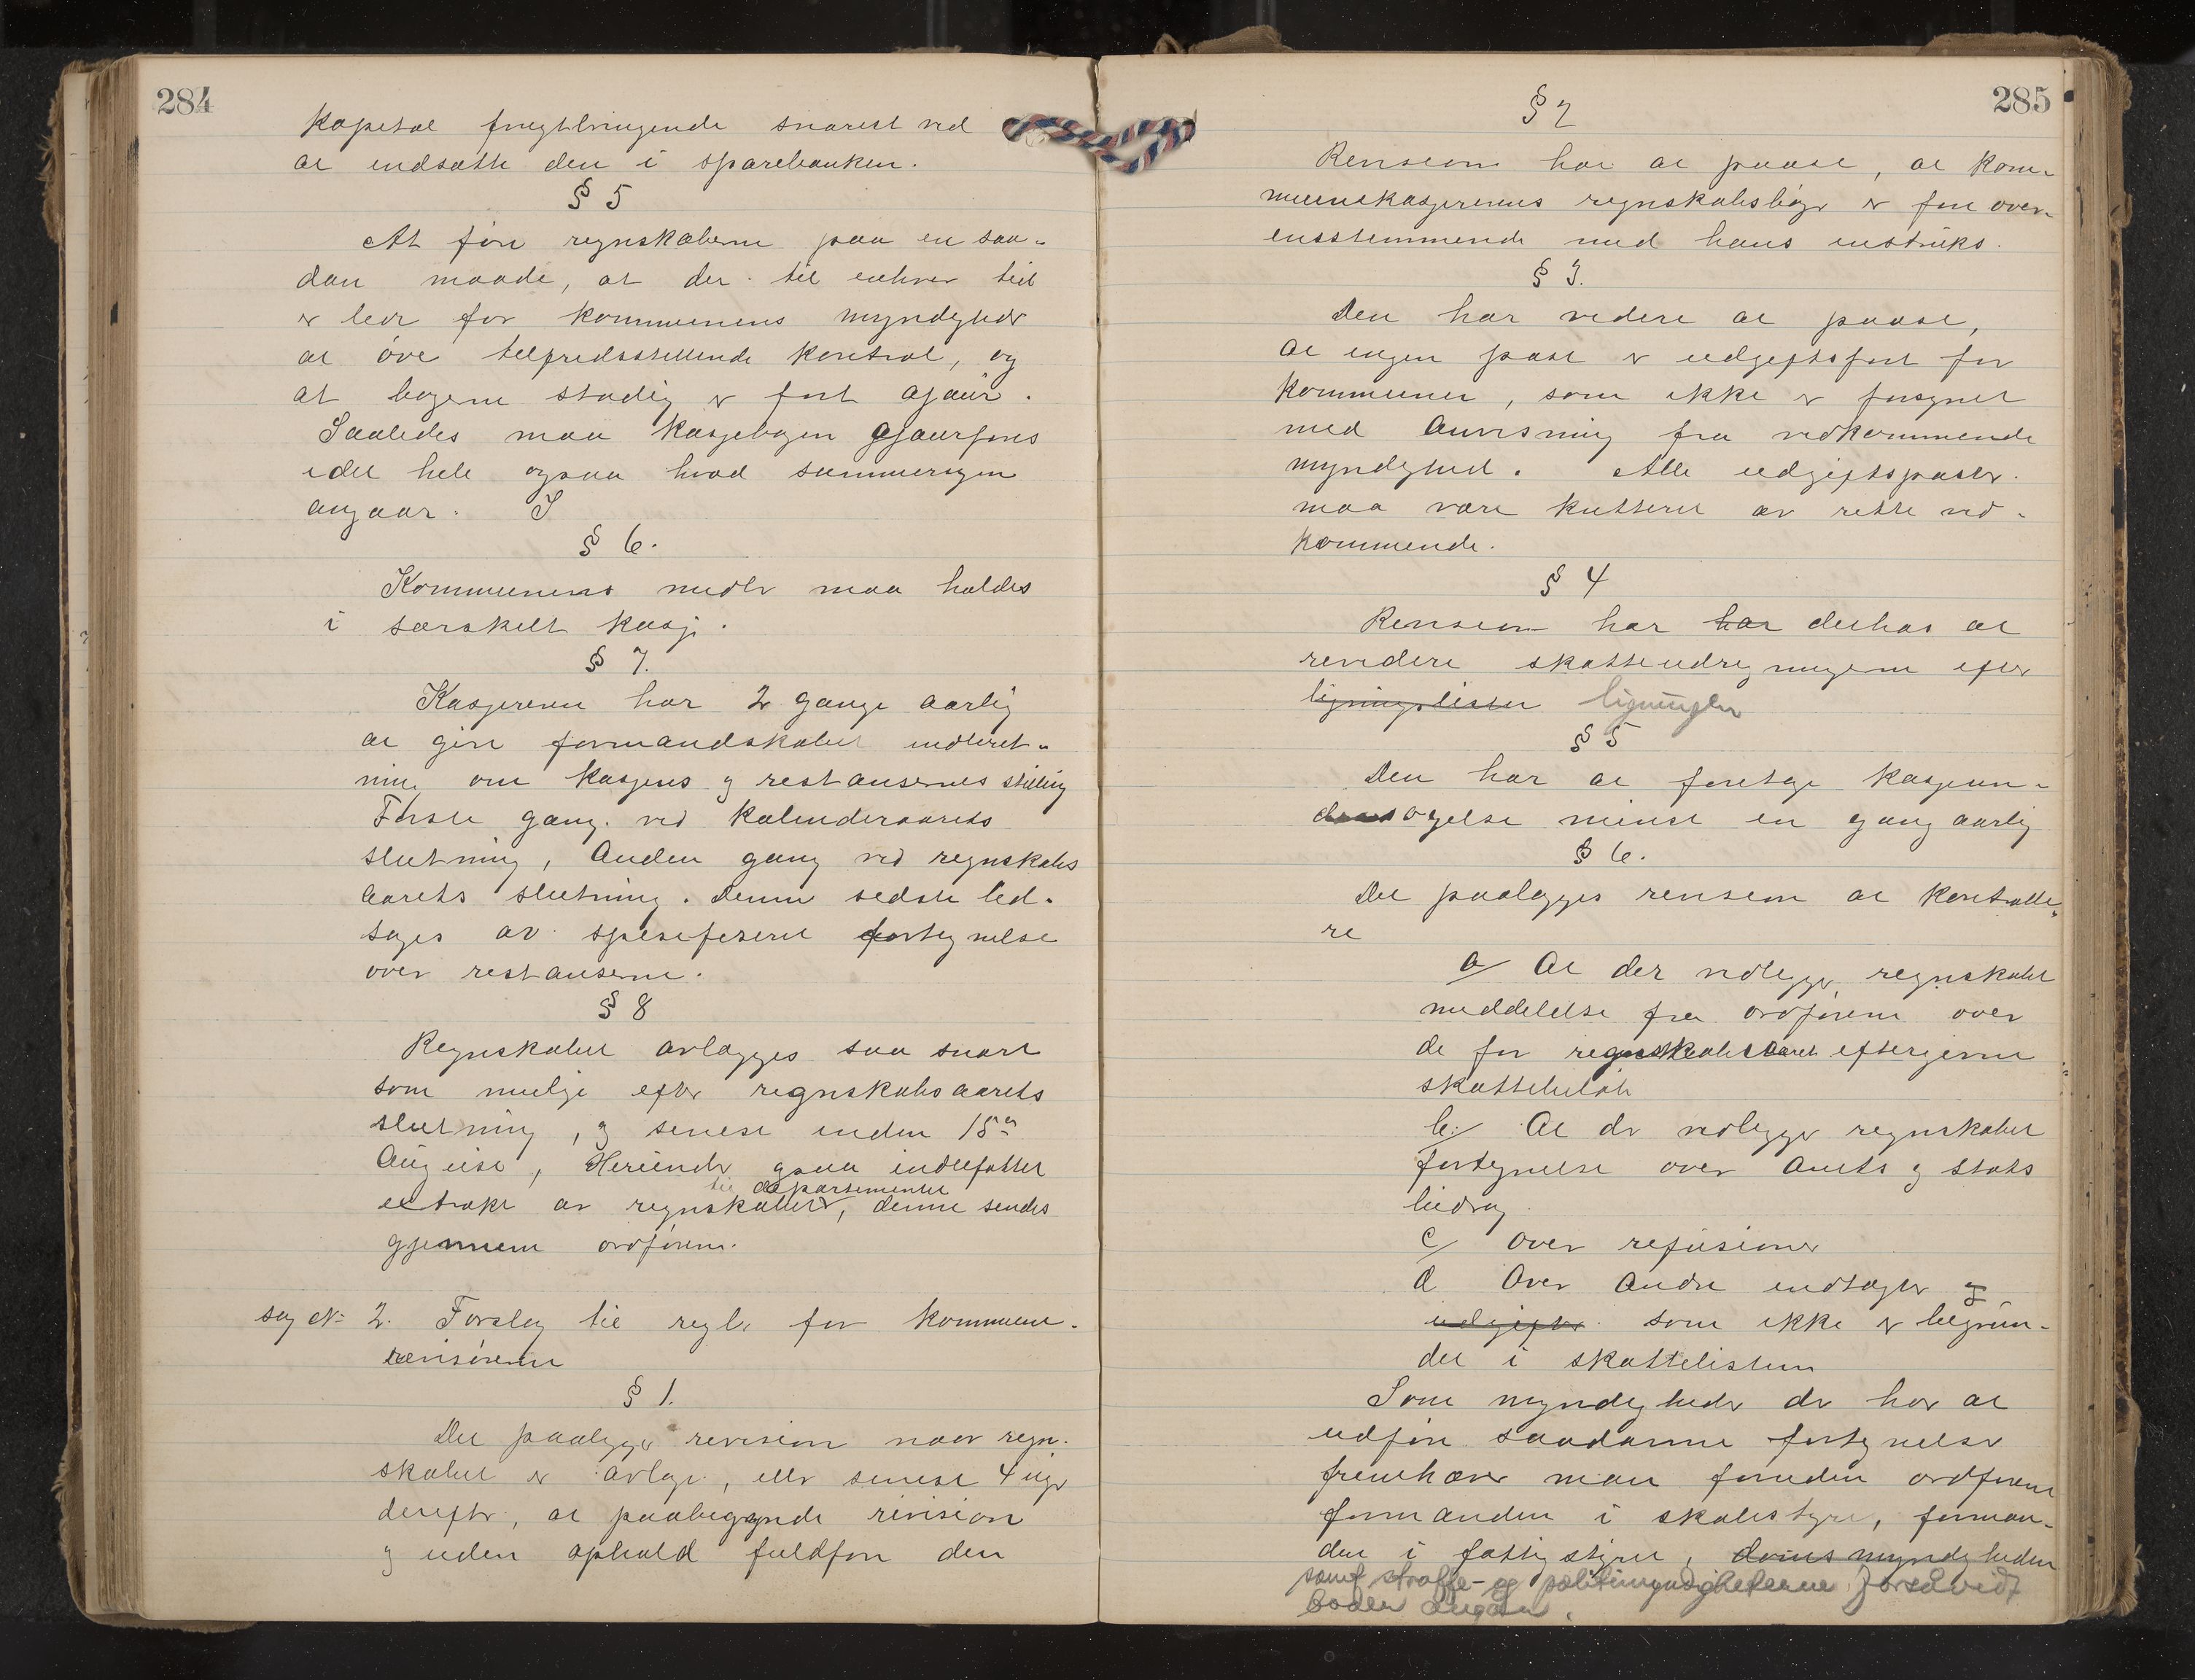 284
Kapital frugtbringende snarest ved
at indsætte den i sparebanken.
§ 5
At føre regnskaberne paa en saa-
dan maade, at der til enhver tid
er let for kommunens myndigheder
at øve tilfredsstillende kontrol, og
at bøgerne stadig er ført ajour.
Saaledes maa kassebogen ajourføres
i det hele ogsaa hvad summeringen
angaar.
§ 6.
Kommunens midler maa holdes
i særskilt kasse.
§ 7.
Kassereren har 2 gange aarlig
at give formandskabet indberet-
ning om kassens og restansernes stilling
Første gang ved kalenderaarets
slutning, anden gang ved regnskabs
aarets slutning. Denne sidste led-
sages av spesifiseret fortegnelse
over restanserne.
§ 8
Regnskabet avlægges saa snart
som mulig efter regnskabsaarets
slutning, og senest inden 15de
August, Herunder ogsaa indbefattet
til departementet
extrakt av regnskabet, denne sendes
gjennem ordføreren.
sag No 2. Forslag til regler for kommune-
revisoren
§ 1.
Det paalegges revision naar regn-
skabet er avlagt, eller senest 4 uger
derefter, at paabegynde revision
og uden ophold fuldføre den
285
§ 2
Revision har at paase, at kom-
munekassererens regnskabsbøger er ført over-
ensstemmende med hans instruks.
§ 3.
Den har videre at paase,
at ingen post er udgiftsført for
kommunen, som ikke er forsynet
med Anvisning fra vedkommende
myndighed. Alle udgiftsposter
maa være kvitteret av rette ved-
kommende.
§ 4
Revision har har derhos at
revidere skatteudregningen efter
ligningslisten ligningen
§ 5
Den har at foretage kasseun-
dersøgelse minst en gang aarlig
§ 6.
Det paalegges revision at kontrolle-
re
a/ At der vedlegges regnskabet
meddelelse fra ordføreren over
de for regnskabsaaret eftergivne
skattebeløb
b:/ At der vedlegges regnskabet
fortegnelse over Amts og Stats
bidrag
c/ Over refusioner
d Over Andre indtægter og
udgifter som ikke er begrun-
det i skattelisten
Som myndigheder der har at
udføre saadanne fortegnelser
fremhæver man foruden ordføreren
formanden i skolestyre, forman-
den i fattigstyret, domsmyndigheden
samt straffe- og politimyndigheterne forsåvidt
bøder angår.